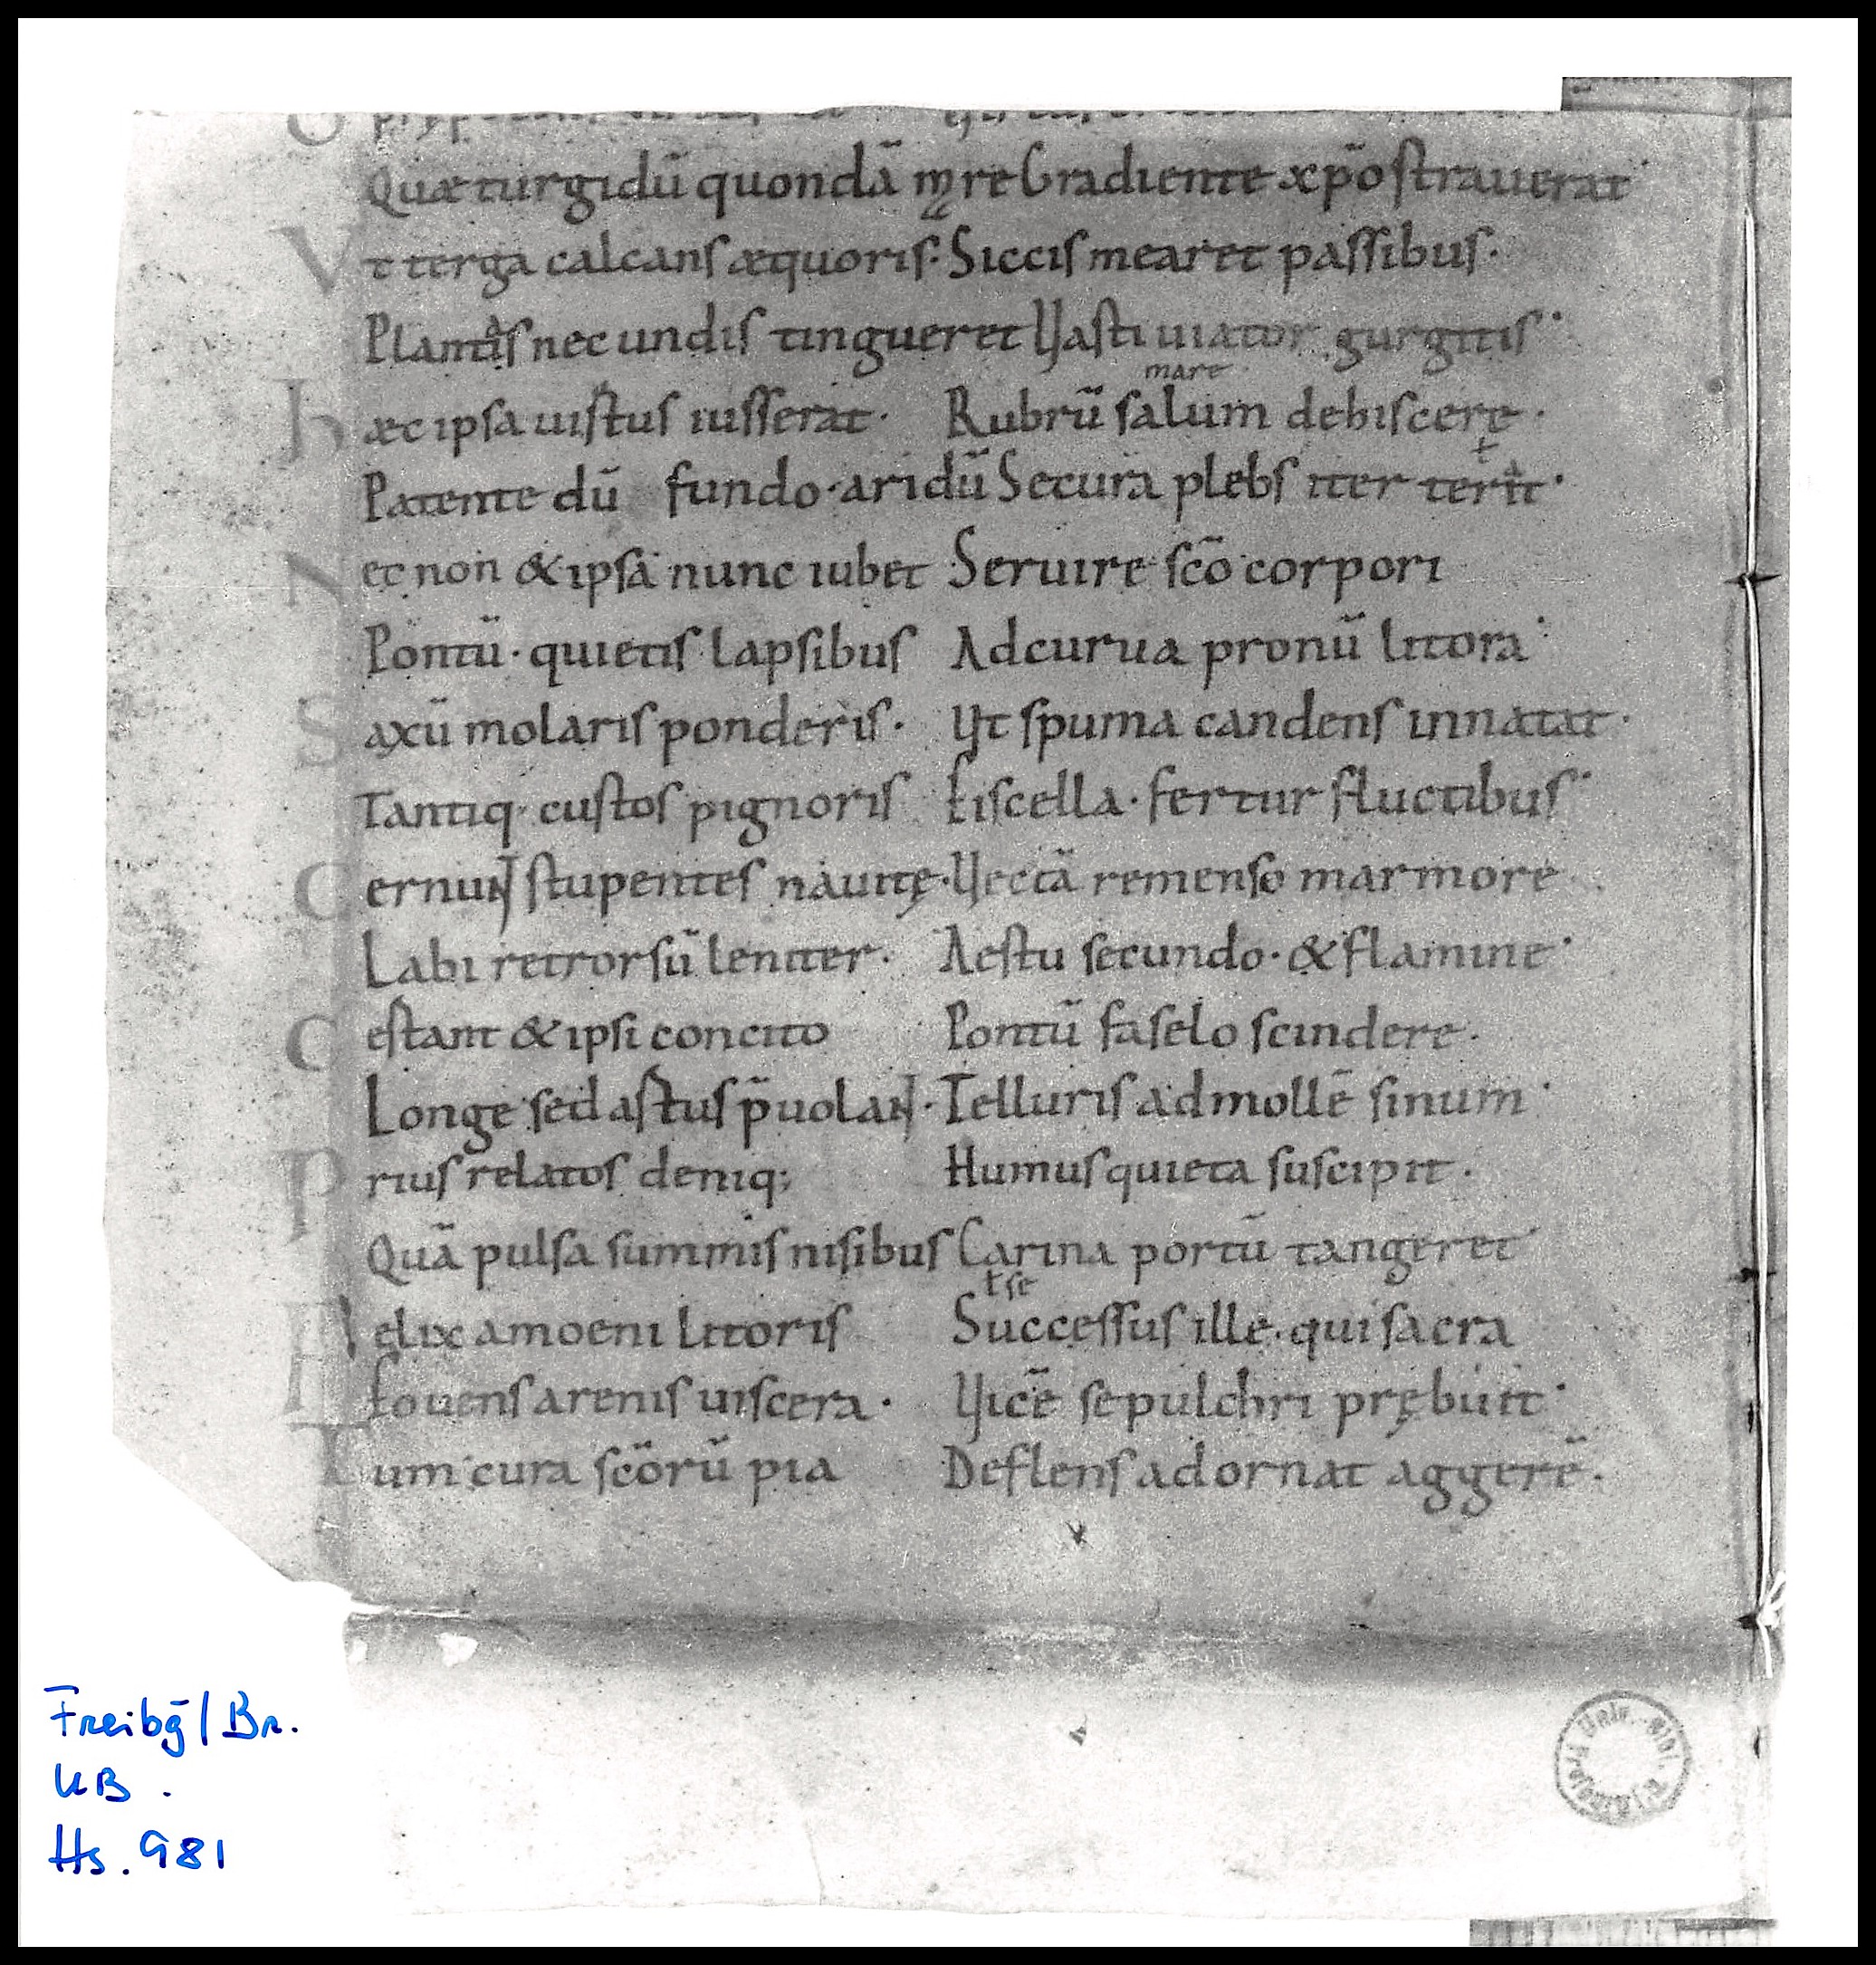 Quæ turgidū quondā mare Gradiente xp̄o straverat·
Vt terga calcans æquoris: Siccis mearet passibus·
Plantas nec undis tingueret Vasti viator gurgitis·
mare
hæc ipsa uirtus iusserat· Rubrū salum dehiscere·
Patente dū fundo· aridū Secura plebs iter terit·
Nec non & ipsa nunc iubet Seruire sc̄o corpori
Pontū· quietis lapsibus Ad curua pronū litora·
Saxū molaris ponderis· Vt spuma candens innatat·
Tantiq· custos pignoris Fiscella· fertur fluctibus·
Cernunt stupentes nautę· Vectā remenso marmore
Labi retrorsū leniter· Aestu secundo· & flamine·
Certant & ipsi concito Pontū faselo scindere·
Longe sed astus p̄uolant· Telluris ad mollē sinum·
Prius relatos deniq; Humus quieta suscipit·
Quā pulsa summis nisibus Carina portū tangeret
ł se
Felix amoeni litoris Successus ille· qui sacra
Fouens arenis uiscera· Vicē sepulchri prębuit·
Tum cura sc̄orū pia Deflens adornat aggerē·
Freibg/Br.
UB.
Hs. 981